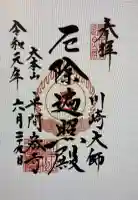 奉拝
川崎大師
厄除遍照殿
大本山
平間教寺
令和元年
六月 日